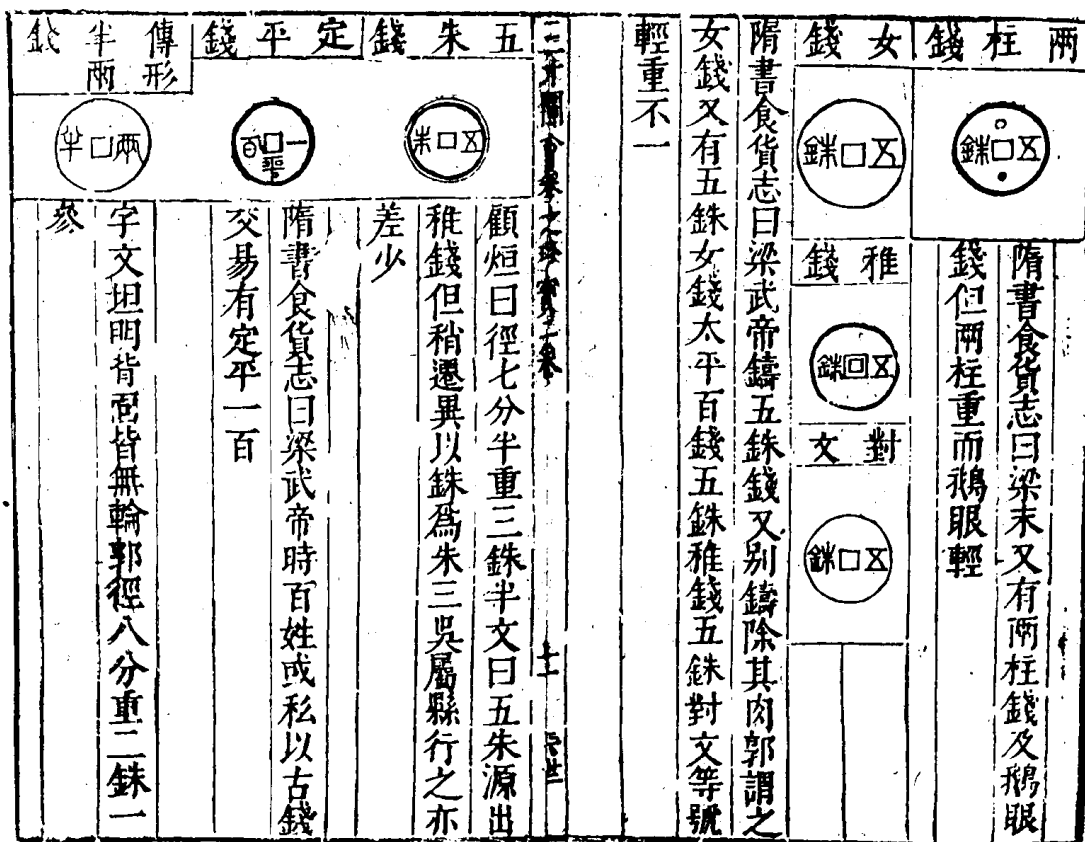 兩柱錢
五銖
隋書食貨志曰梁末又有兩柱錢及鵝眼
錢但兩柱重而鵝眼輕
女錢
五銖
雅錢
五銖
對文
五銖
隋書食貨志曰梁武帝鑄五銖錢又别鑄除其肉郭謂之
女錢又有五銖女錢太平百錢五銖稚錢五銖對文等號
輕重不一
三才圖會
五朱錢
五朱
顧烜曰徑七分半重三銖半文曰五朱源出
稚錢但稍遷異以銖爲朱三吳屬縣行之亦
差少
定平錢
定平一百
隋書食貨志曰梁武帝時百姓或私以古錢
交易有定平一百
傳形半兩錢
兩半
字文坦明背面皆無輪郭徑八分重二銖一
參